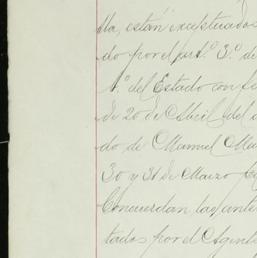 lla, están exceptuados
do por el art.º 3.º de
A.º del Estado con fe
de 20 de Abril del a
do de Manuel Ma
30 y 31 de Marzo
Concuerdan las ante
tados por el Agent